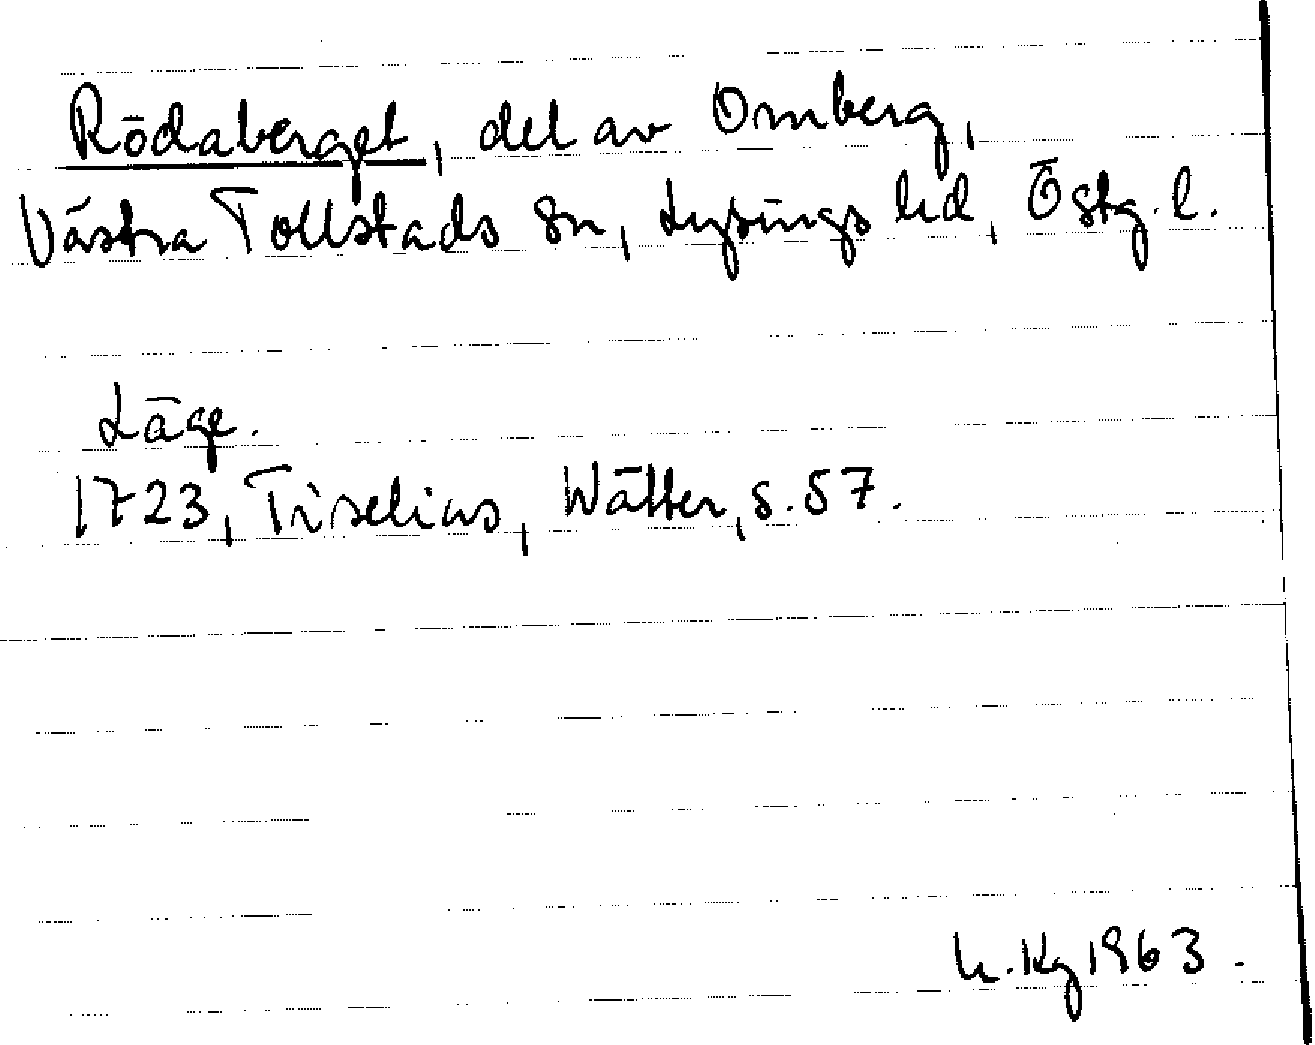 Rödaberget, del av Omberg,
Västra Tollstads sn, Lysings hd, Östg. l.
Läge.
1723, Tiselius, Wätter, s. 57.
h. Kg 1963.